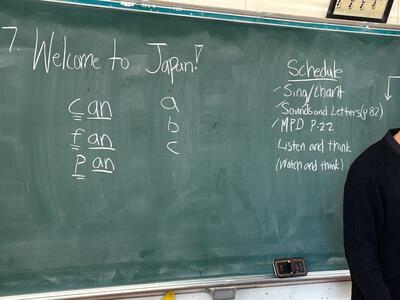 7. Welcome to Japan!
can
fan
pan
a
b
c
Schedule
Sing/Chant
Sounds and Letters(p82)
MPD P.22
Listen and think
(Watch and think)